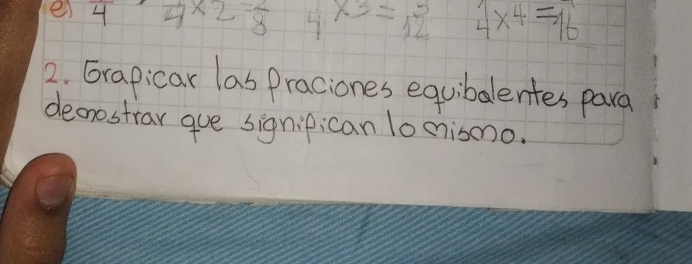 e) 4 4×2=2/8 4×3=3/12 1/4×4=16
2. Grapicar las praciones equibalentes para
demostrar que signipican lo mismo.